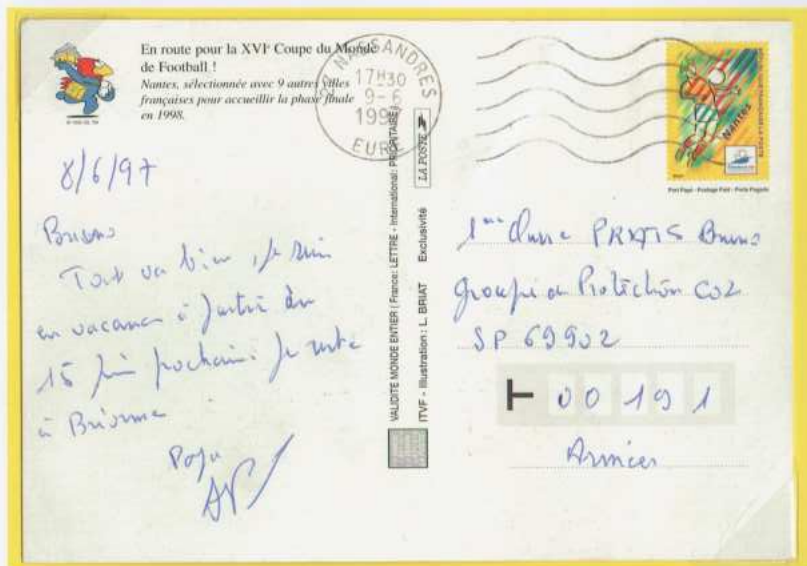 En route pour la XVIᵉ Coupe du Monde
de Football !
Nantes, sélectionnée avec 9 autres villes
françaises pour accueillir la phase finale
en 1998.
NASSANDRES
17H30
9-6
199
EURE
NANTES
Port Payé - Postage Paid - Porte Pagado
8/6/97
Bruno
Tout va bien, je suis
en vacances à partir du
15 juin prochain. Je reste
à Brionne
Papa
VALIDITE MONDE ENTIER (France: LETTRE - International: PRIORITAIRE)
LA POSTE
ITVF - Illustration : L. BRIAT Exclusivité
1ère Classe PRATS Bruno
Groupe de Protection CO2
SP 69902
T 00191
Armées